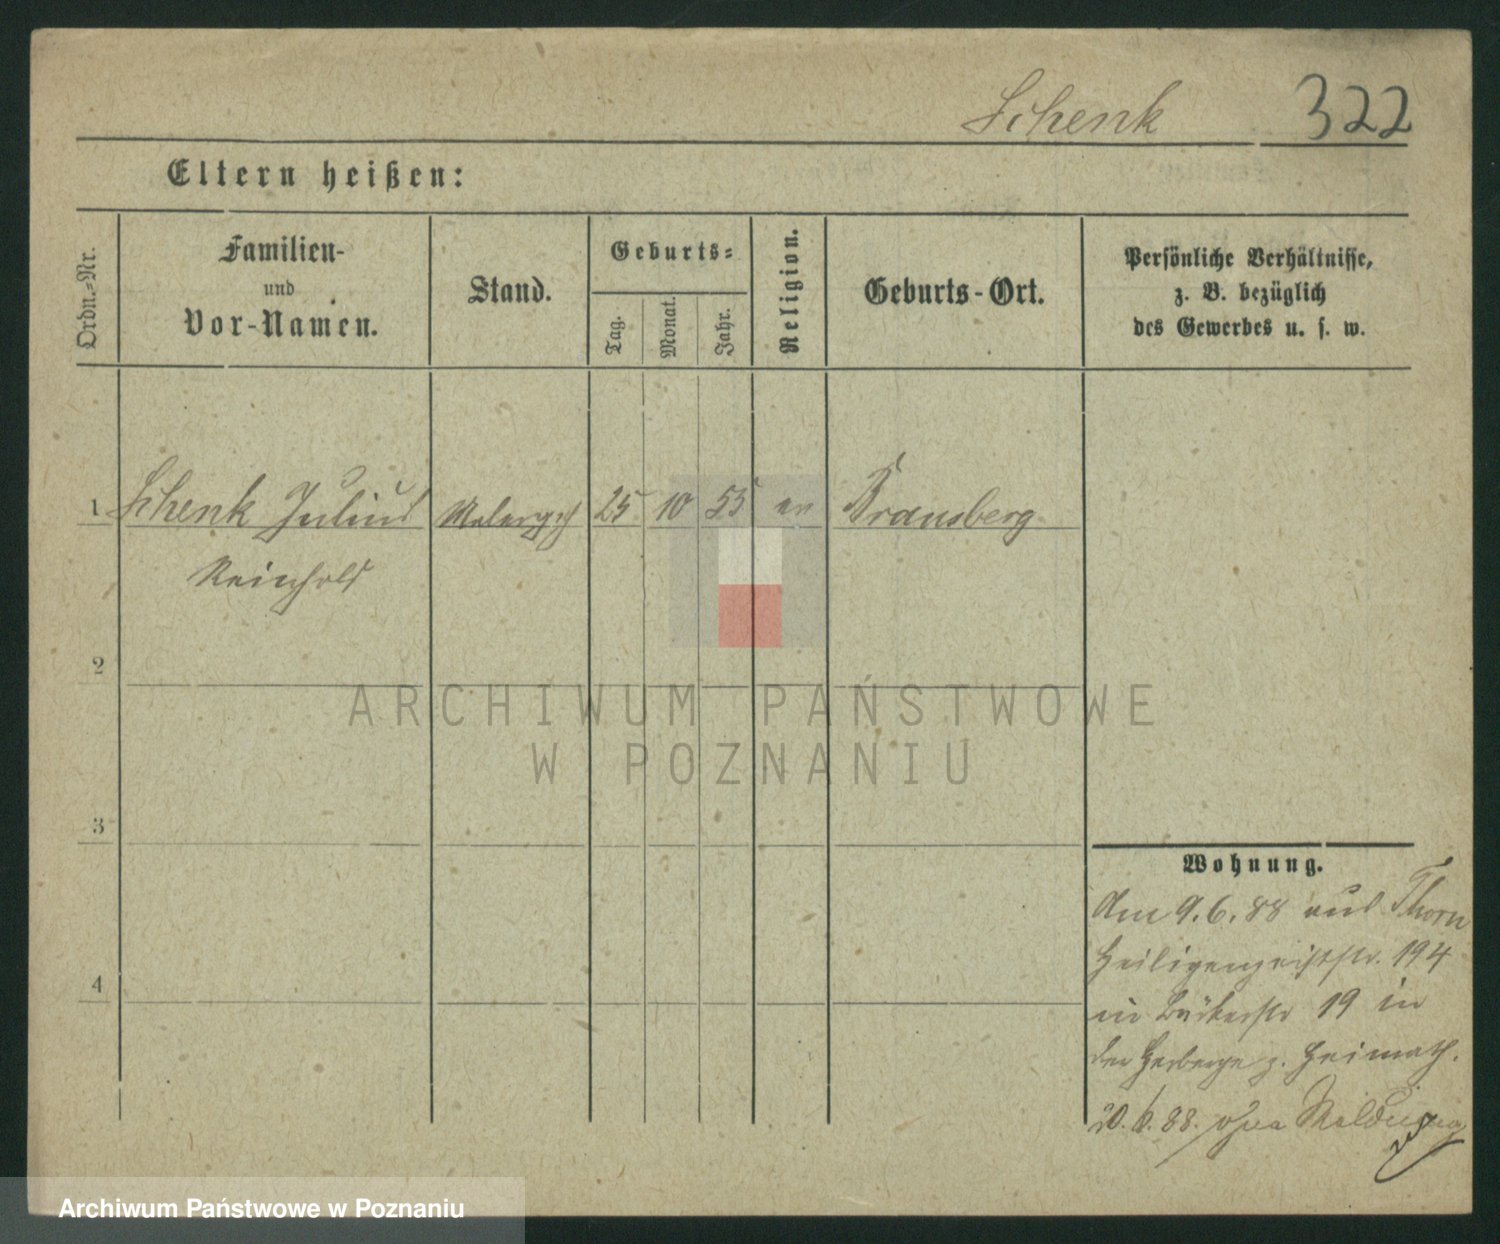 Schenk 322
Eltern heißen:
Ordn.-Nr.
Familien-
und
Vor-Namen.
Stand.
Geburts-
Tag.
Monat.
Jahr.
Religion.
Geburts-Ort.
Persönliche Verhältnisse,
z. B. bezüglich
des Gewerbes u. s. w.
1 Schenk Julius Malergeh 25 10 55 ev Braunsberg
Reinhold
2
3
4
Wohnung.
Am 9.6.88 aus Thorn
Heiligegeiststr. 194
in Bäckerstr 19 in
der Herberge z. Heimath.
20.6.88. ohne Meldung
ARCHIWUM PAŃSTWOWE
W POZNANIU
Archiwum Państwowe w Poznaniu